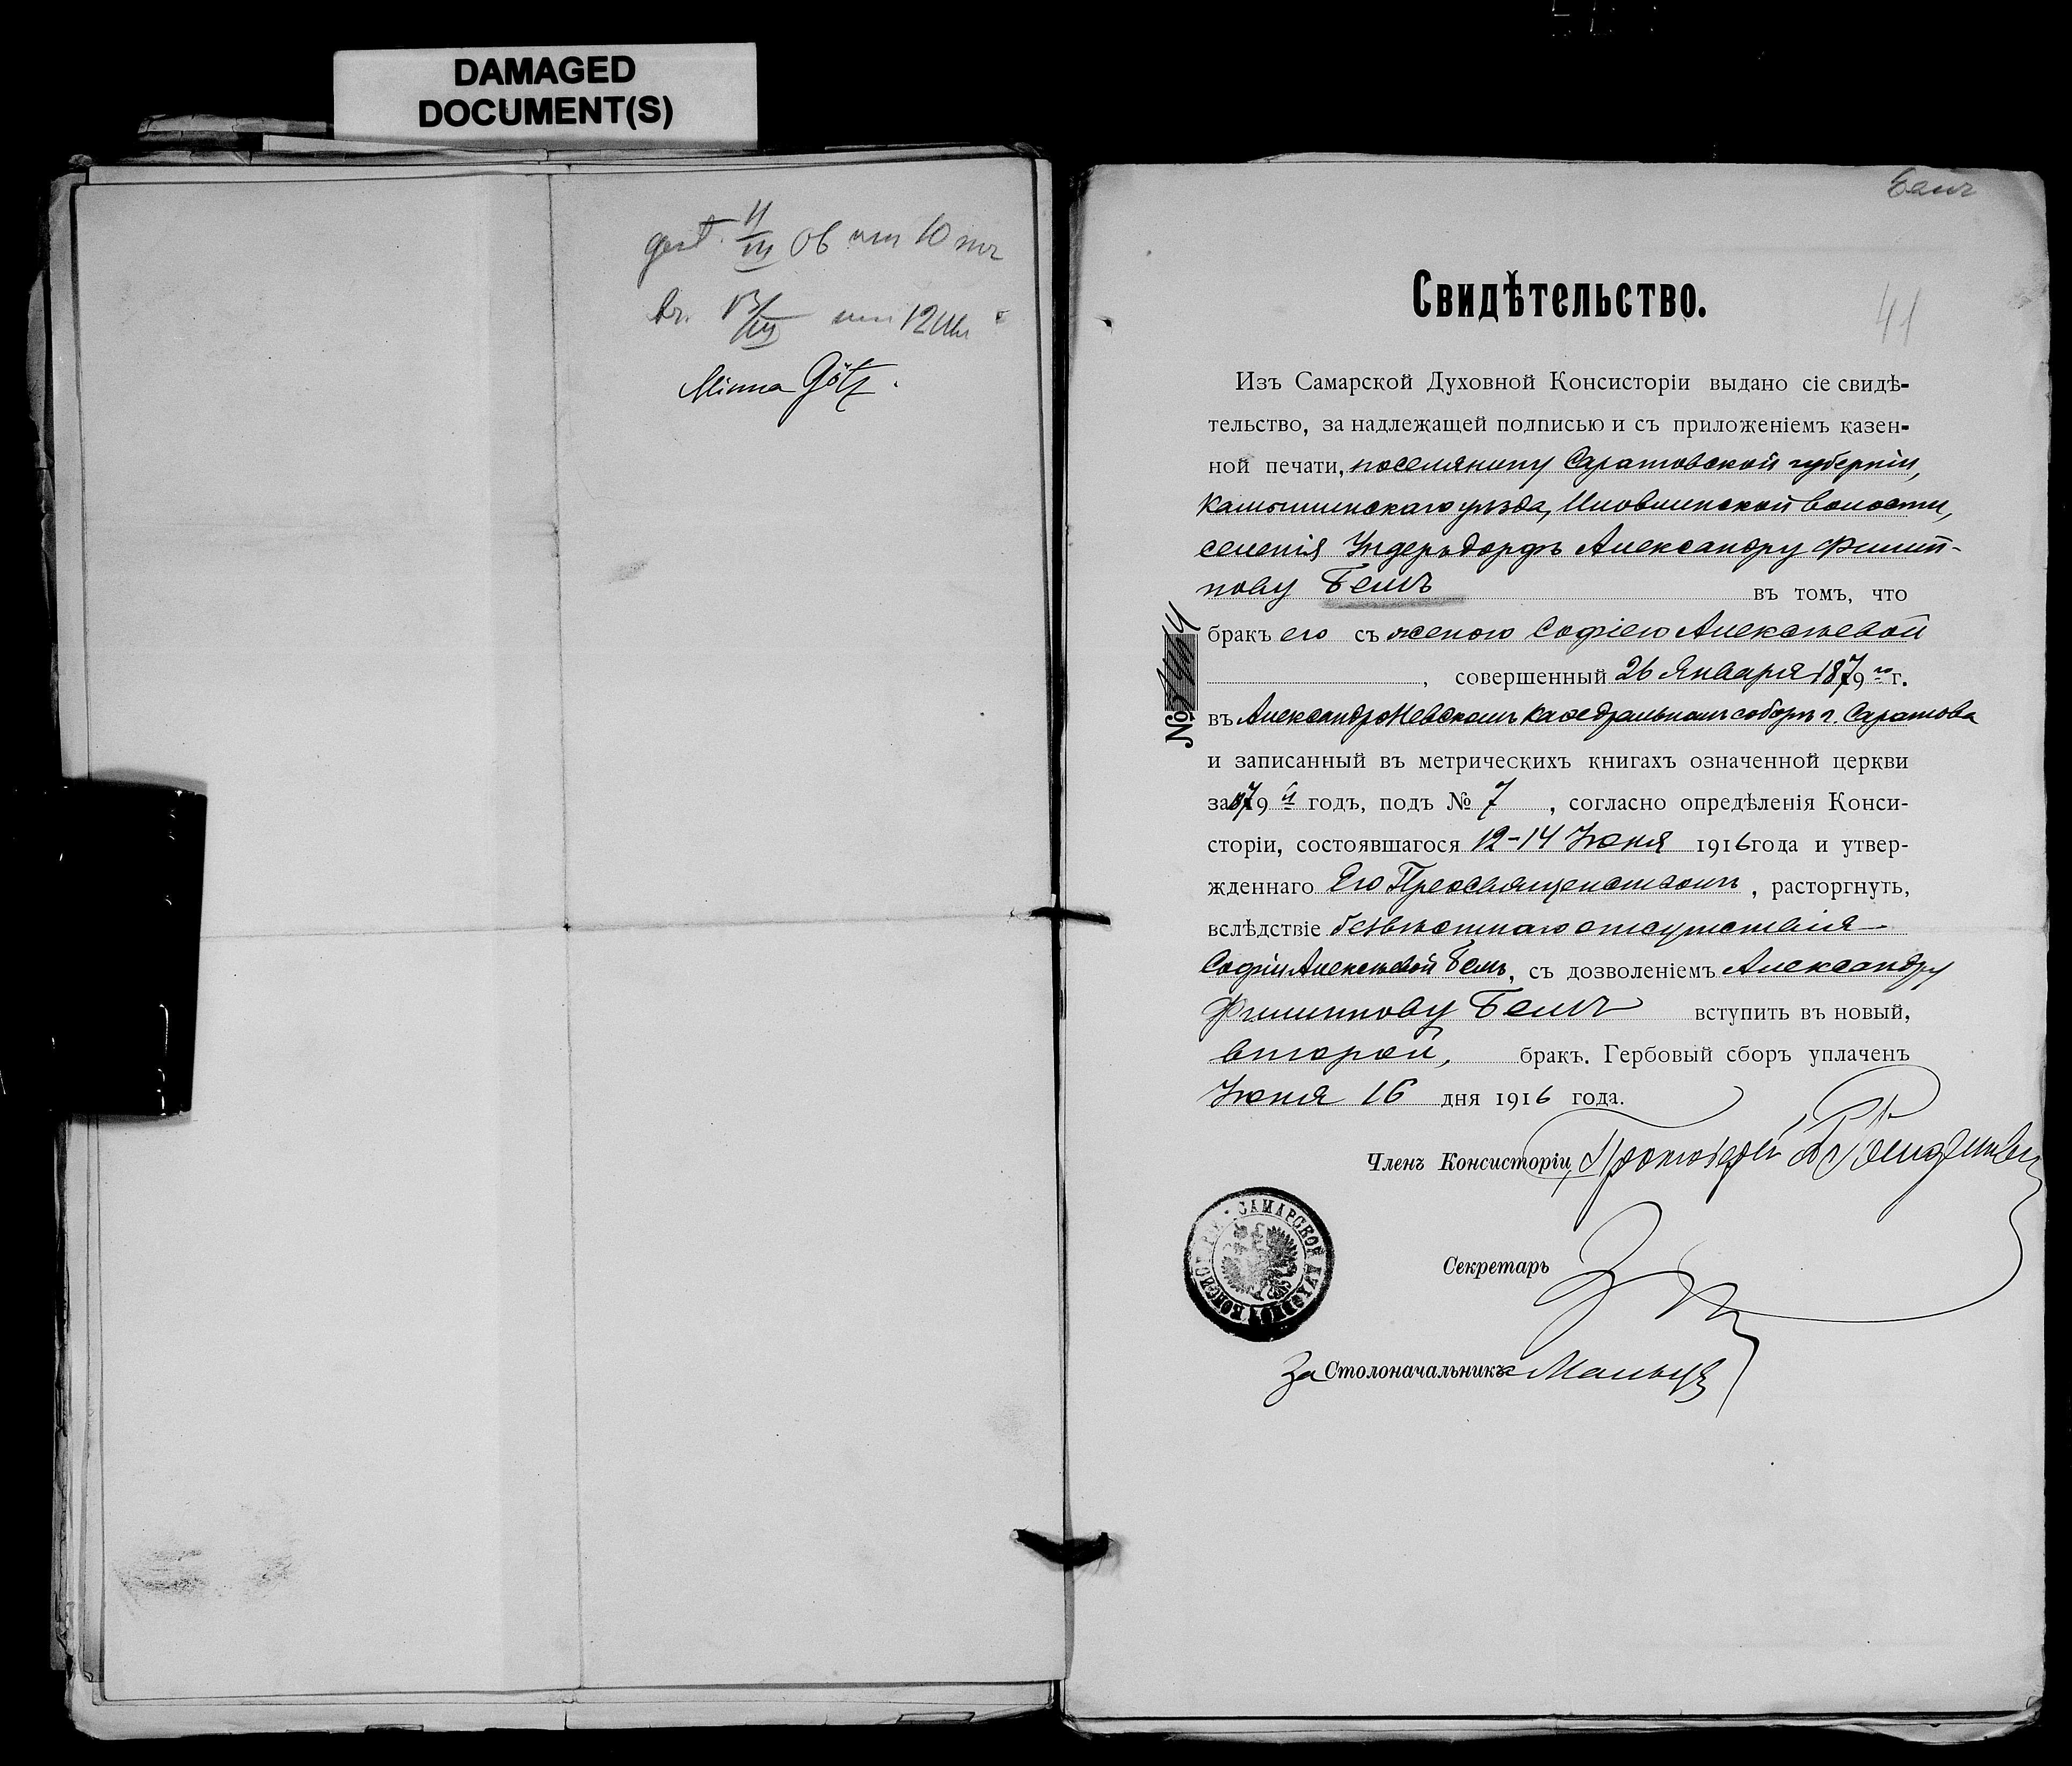 DAMAGED
DOCUMENT(S)
gest. 11/III 06 um 10 Uhr
br. 13/III um 12 Uhr
Minna Götz.
Бемъ
41
Свидѣтельство.
Изъ Самарской Духовной Консисторіи выдано сіе свидѣ-
тельство, за надлежащей подписью и съ приложеніемъ казен-
ной печати, поселянину Саратовской губерніи,
Камышинскаго уѣзда, Иловлинской волости,
селенія Ундерсдорфъ Александру Филип-
пову Бемъ въ томъ, что
бракъ его съ женою Софіею Алексѣевой
, совершенный 26 Января 1879 го г.
въ Александро Невскомъ Каѳедральномъ соборѣ г. Саратова
и записанный въ метрическихъ книгахъ означенной церкви
за 1879 й годъ, подъ № 7 , согласно опредѣленія Конси-
сторіи, состоявшагося 12-14 Іюня 1916 года и утвер-
жденнаго Его Преосвященствомъ , расторгнуть,
вслѣдствіе безвѣстнаго отсутствія
Софіи Алексѣевой Бемъ, съ дозволеніемъ Александру
Филиппову Бемъ вступить въ новый,
второй, бракъ. Гербовый сборъ уплаченъ
Іюня 16 дня 1916 года.
№
Членъ Консисторіи, Протоіерей
САМАРСКОЙ ДУХОВНОЙ КОНСИСТОРІИ
Секретарь
За Столоначальника Мальцев